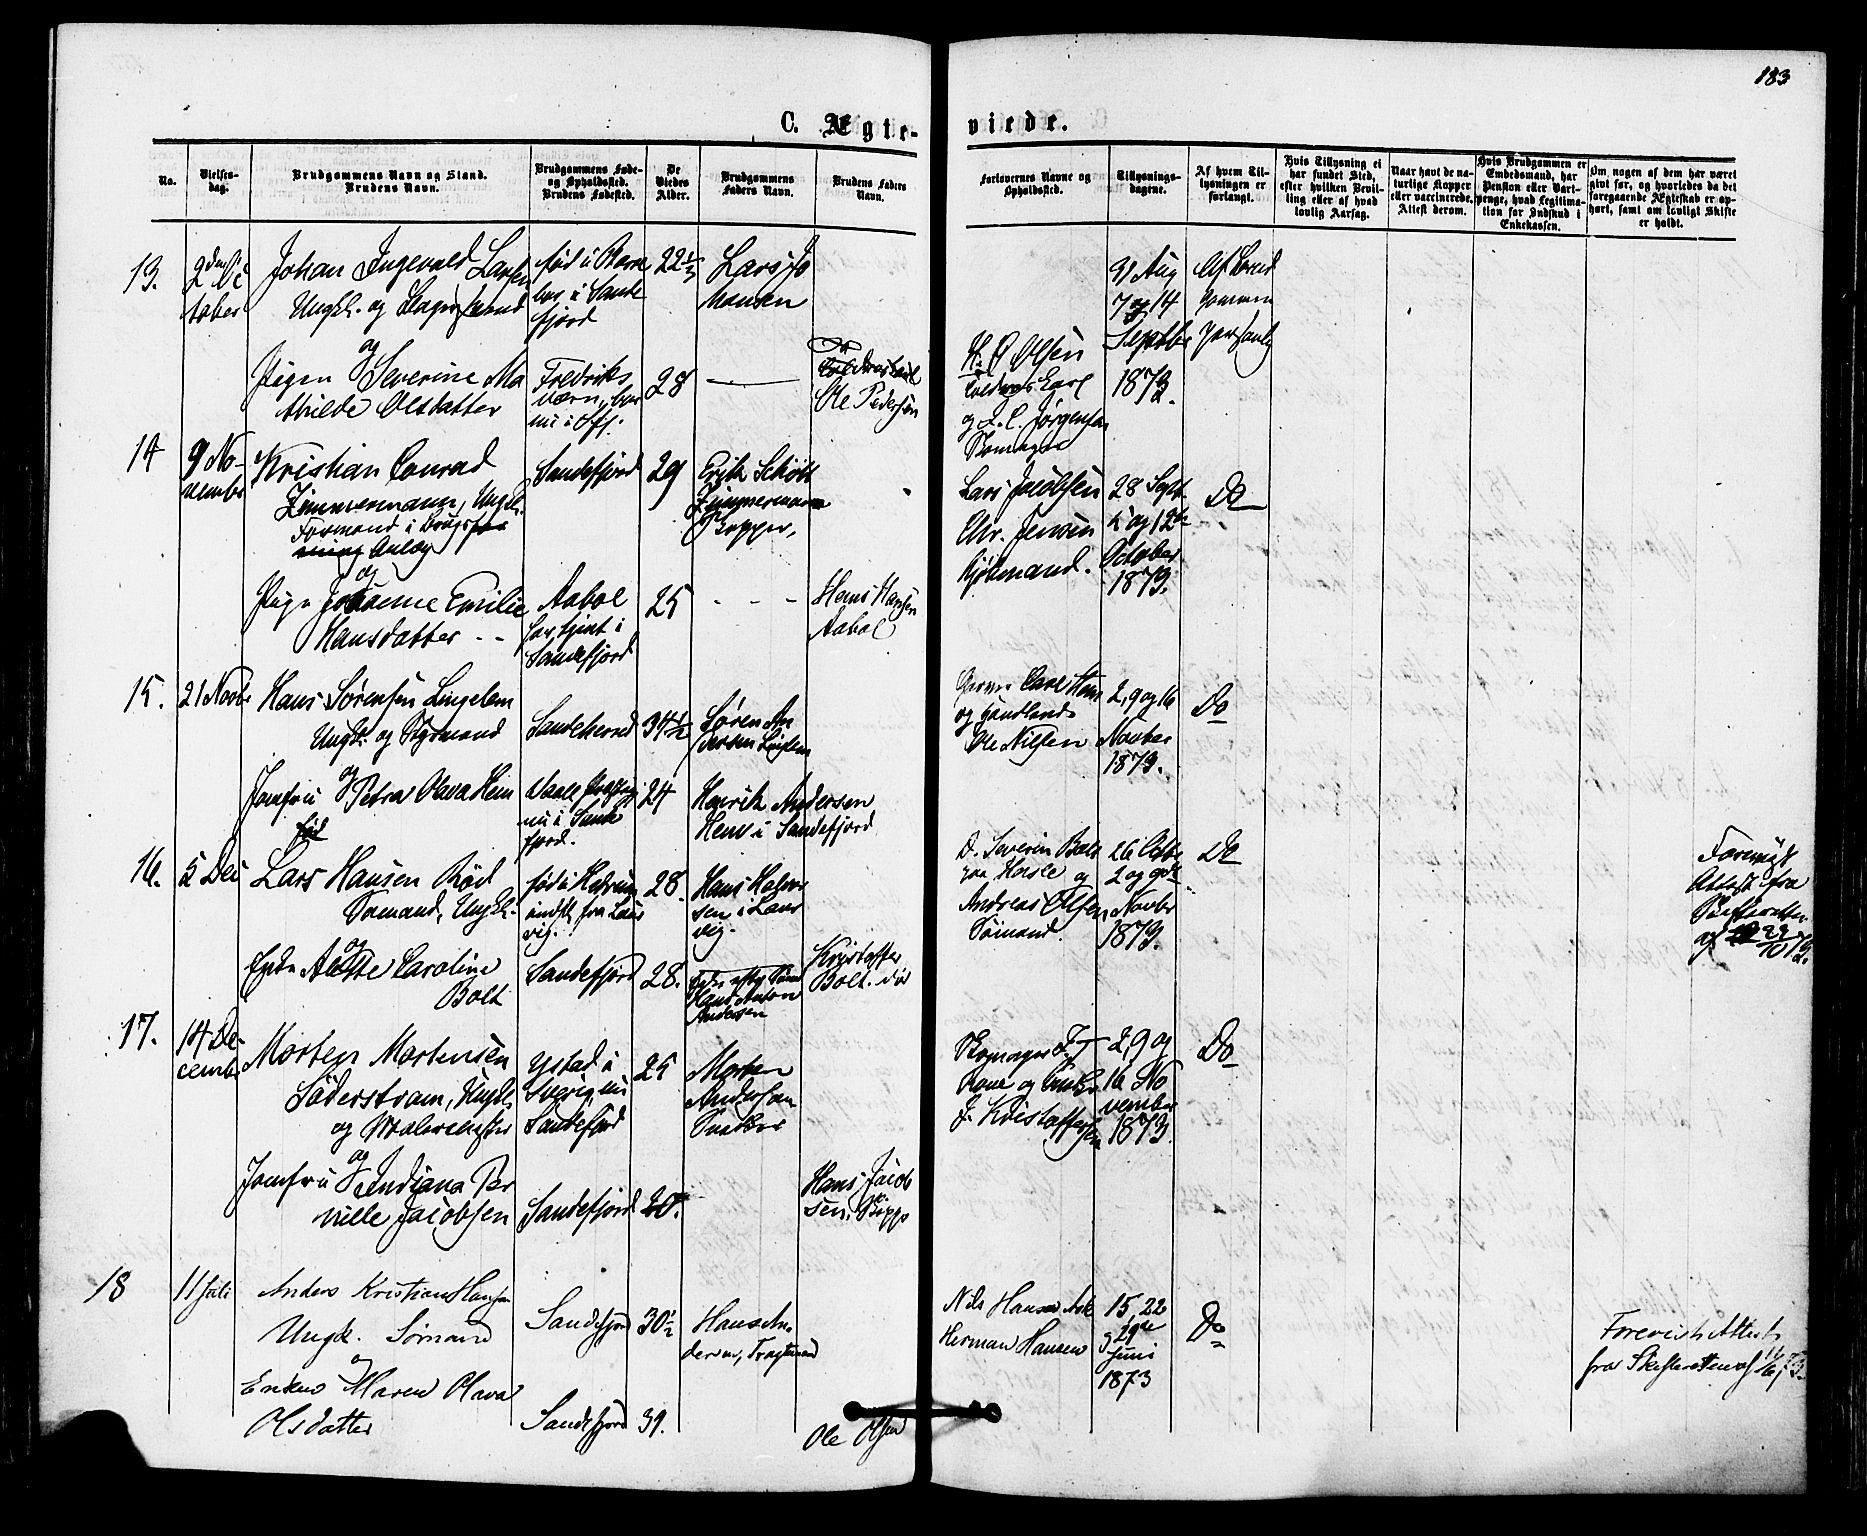 183
C. Ægte-
viede.
No.
Vielses-
dag.
Brudgommens Navn og Stand.
Brudens Navn.
Brudgommens Føde-
og Opholdssted.
Brudens Fødested.
De
Viedes
Alder.
Brudgommens
Faders Navn.
Brudens Faders
Navn.
Forlovernes Navne og
Opholdssted.
Tillysnings-
dagene.
Af hvem Til-
lysningen er
forlangt.
Hvis Tillysning ei
har fundet Sted,
efter hvilken Bevil-
ling eller af hvad
lovlig Aarsag.
Naar havt de na-
turlige Kopper
eller vaccinerede.
Attest derom.
Hvis Brudgommen er
Embedsmand, har
Pension eller Vart-
penge, hvad Legitima-
tion for Indskud i
Enkekassen.
Om nogen af dem har været
givt før, og hvorledes da det
foregaaende Ægteskab er op-
hørt, samt om lovligt Skifte
er holdt.
13.
2den Oc
tober
Johan Ingevald Larsen
Ungk. og
og
Pigen Severine Ma
thilde Olsdatter
født i
bor i Sande
fjord
Fredriks
værn, bor
nu i
22 1/3
28
Lars Jo
hansen
Ole Pedersen
H. C. Olsen
og L. C. Jørgensen
Skomager
31 Aug
7 og 14
Septbr
1873.
Af Brud
gommen
14
9 No-
vembr
Kristian Conrad
Zimmermann, Ungk.
Formand i Brugs
Anlæg
og
Pige Johanne Emilie
Hansdatter - -
Sandefjord
Aabol
har tjent i
Sandefjord
29
25
Erik Schøtt
Zimmermann
Skipper,
- - -
Hans Hansen
Aabol
Lars Jacobsen
Chr. Jensen
Kjøbmand.
28 Sept.
5 og 12te
October
1873.
Do
15.
21 Novbr
Hans Sørensen Lingelem
Ungk. og Styrmand
og
Jomfru Petra Olava Hem
Sandeherred
nu i Sande
fjord.
34 1/2
24
Søren An
dersen
Henrik Andersen
Hem i Sandefjord
Garver Carl Hem
og Handlende
Ole Nilsen
2, 9 og 16
Novber
1873.
Do
16.
5 Dec
Lars Hansen Rød
Sømand, Ungk.
og
Enke Anette Caroline
Bolt
født i Hedrum
indfl. fra Laur
vig.
Sandefjord
28.
28.
Hans Halvor
sen i Laur
vig.
Enke efter Sømd
Hans Anton
Andersen
Kristoffer
Bolt. død
D. Severin Bolt
paa Hasle og
Andreas Olsen
Sømand.
26 Octbr
2 og 9de
Novbr
1873.
Do
Forevist
Attest fra
Skifteretten
af 22/10 73.
17.
14 De-
cember
Morten Mortensen
Söderstrøm, Ungk.
og Malermester
og
Jomfru Indiana Per
nille Jacobsen
Ystad i
Sverig, nu
Sandefjord
Sandefjord
25
20.
Morten
Anderson
Hans Jacob
sen, Skipp
Skomager
og
J. Kristoffersen
2, 9 og
16 No
vember
1873
Do
18
11 Juli
Anders Kristian Hansen
Ungk. Sømand
og
Enken Maren Olava
Olsdatter
Sandefjord
Sandefjord
30 1/2
39.
Hans An-
dersen, Fragtmand
Ole Olsen
Nils Hansen Ask
Herman Hansen
15, 22
og 29de
Juni
1873
Do
Forevist Attest
fra Skifteretten af 11/6 73.